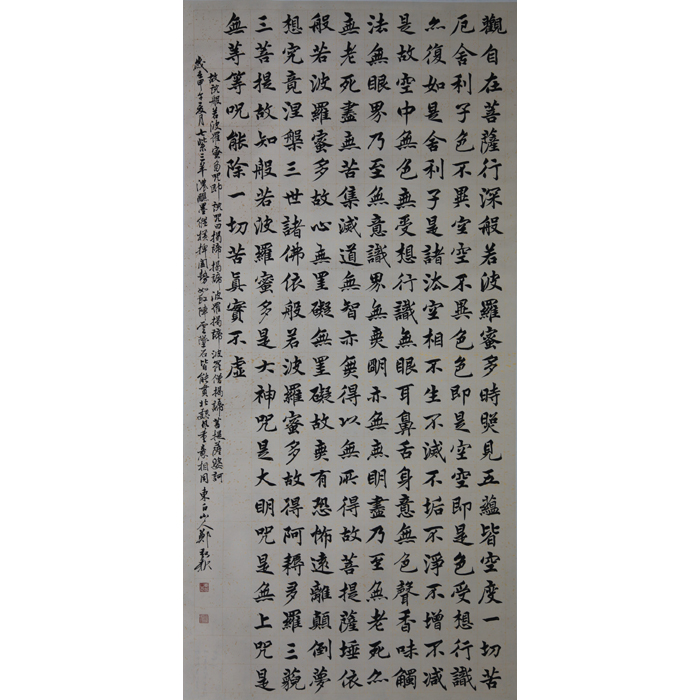 觀自在菩薩行深般若波羅蜜多時照見五蘊皆空度一切苦
厄舍利子色不異空空不異色色即是空空即是色受想行識
亦復如是舍利子是諸法空相不生不滅不垢不淨不增不減
是故空中無色無受想行識無眼耳鼻舌身意無色聲香味觸
法無眼界乃至無意識界無無明亦無無明盡乃至無老死亦
無老死盡無苦集滅道無智亦無得以無所得故菩提薩埵依
般若波羅蜜多故心無罣礙無罣礙故無有恐怖遠離顛倒夢
想究竟涅槃三世諸佛依般若波羅蜜多故得阿耨多羅三藐
三菩提故知般若波羅蜜多是大神咒是大明咒是無上咒是
無等等咒能除一切苦真實不虛
故說般若波羅蜜多咒即說咒曰揭諦揭諦波羅揭諦波羅僧揭諦菩提薩婆訶
歲在甲午 月 東白山人鄭